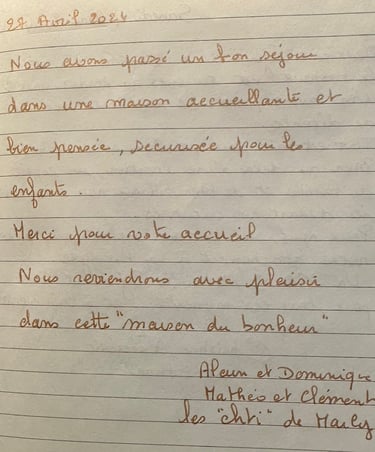 27 Avril 2024
Nous avons passé un bon séjour
dans une maison accueillante et
bien pensée, sécurisée pour les
enfants.
Merci pour votre accueil
Nous reviendrons avec plaisir
dans cette "maison du bonheur"
Alain et Dominique
Mathéo et Clément
les "chti" de Marly